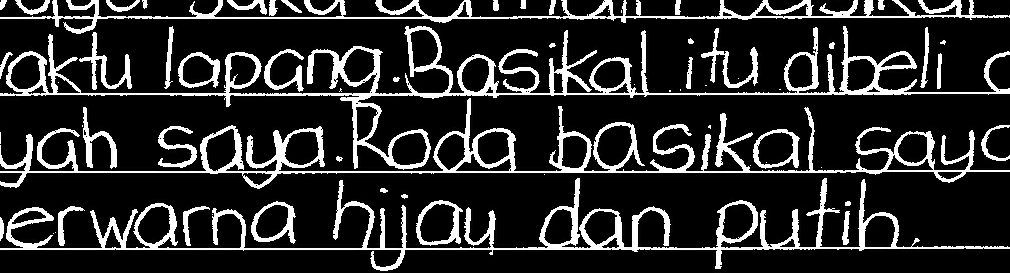 saya suka bermain basikal
waktu lapang.Basikal itu dibeli o
yah saya.Roda basikal saya
berwarna hijau dan putih.